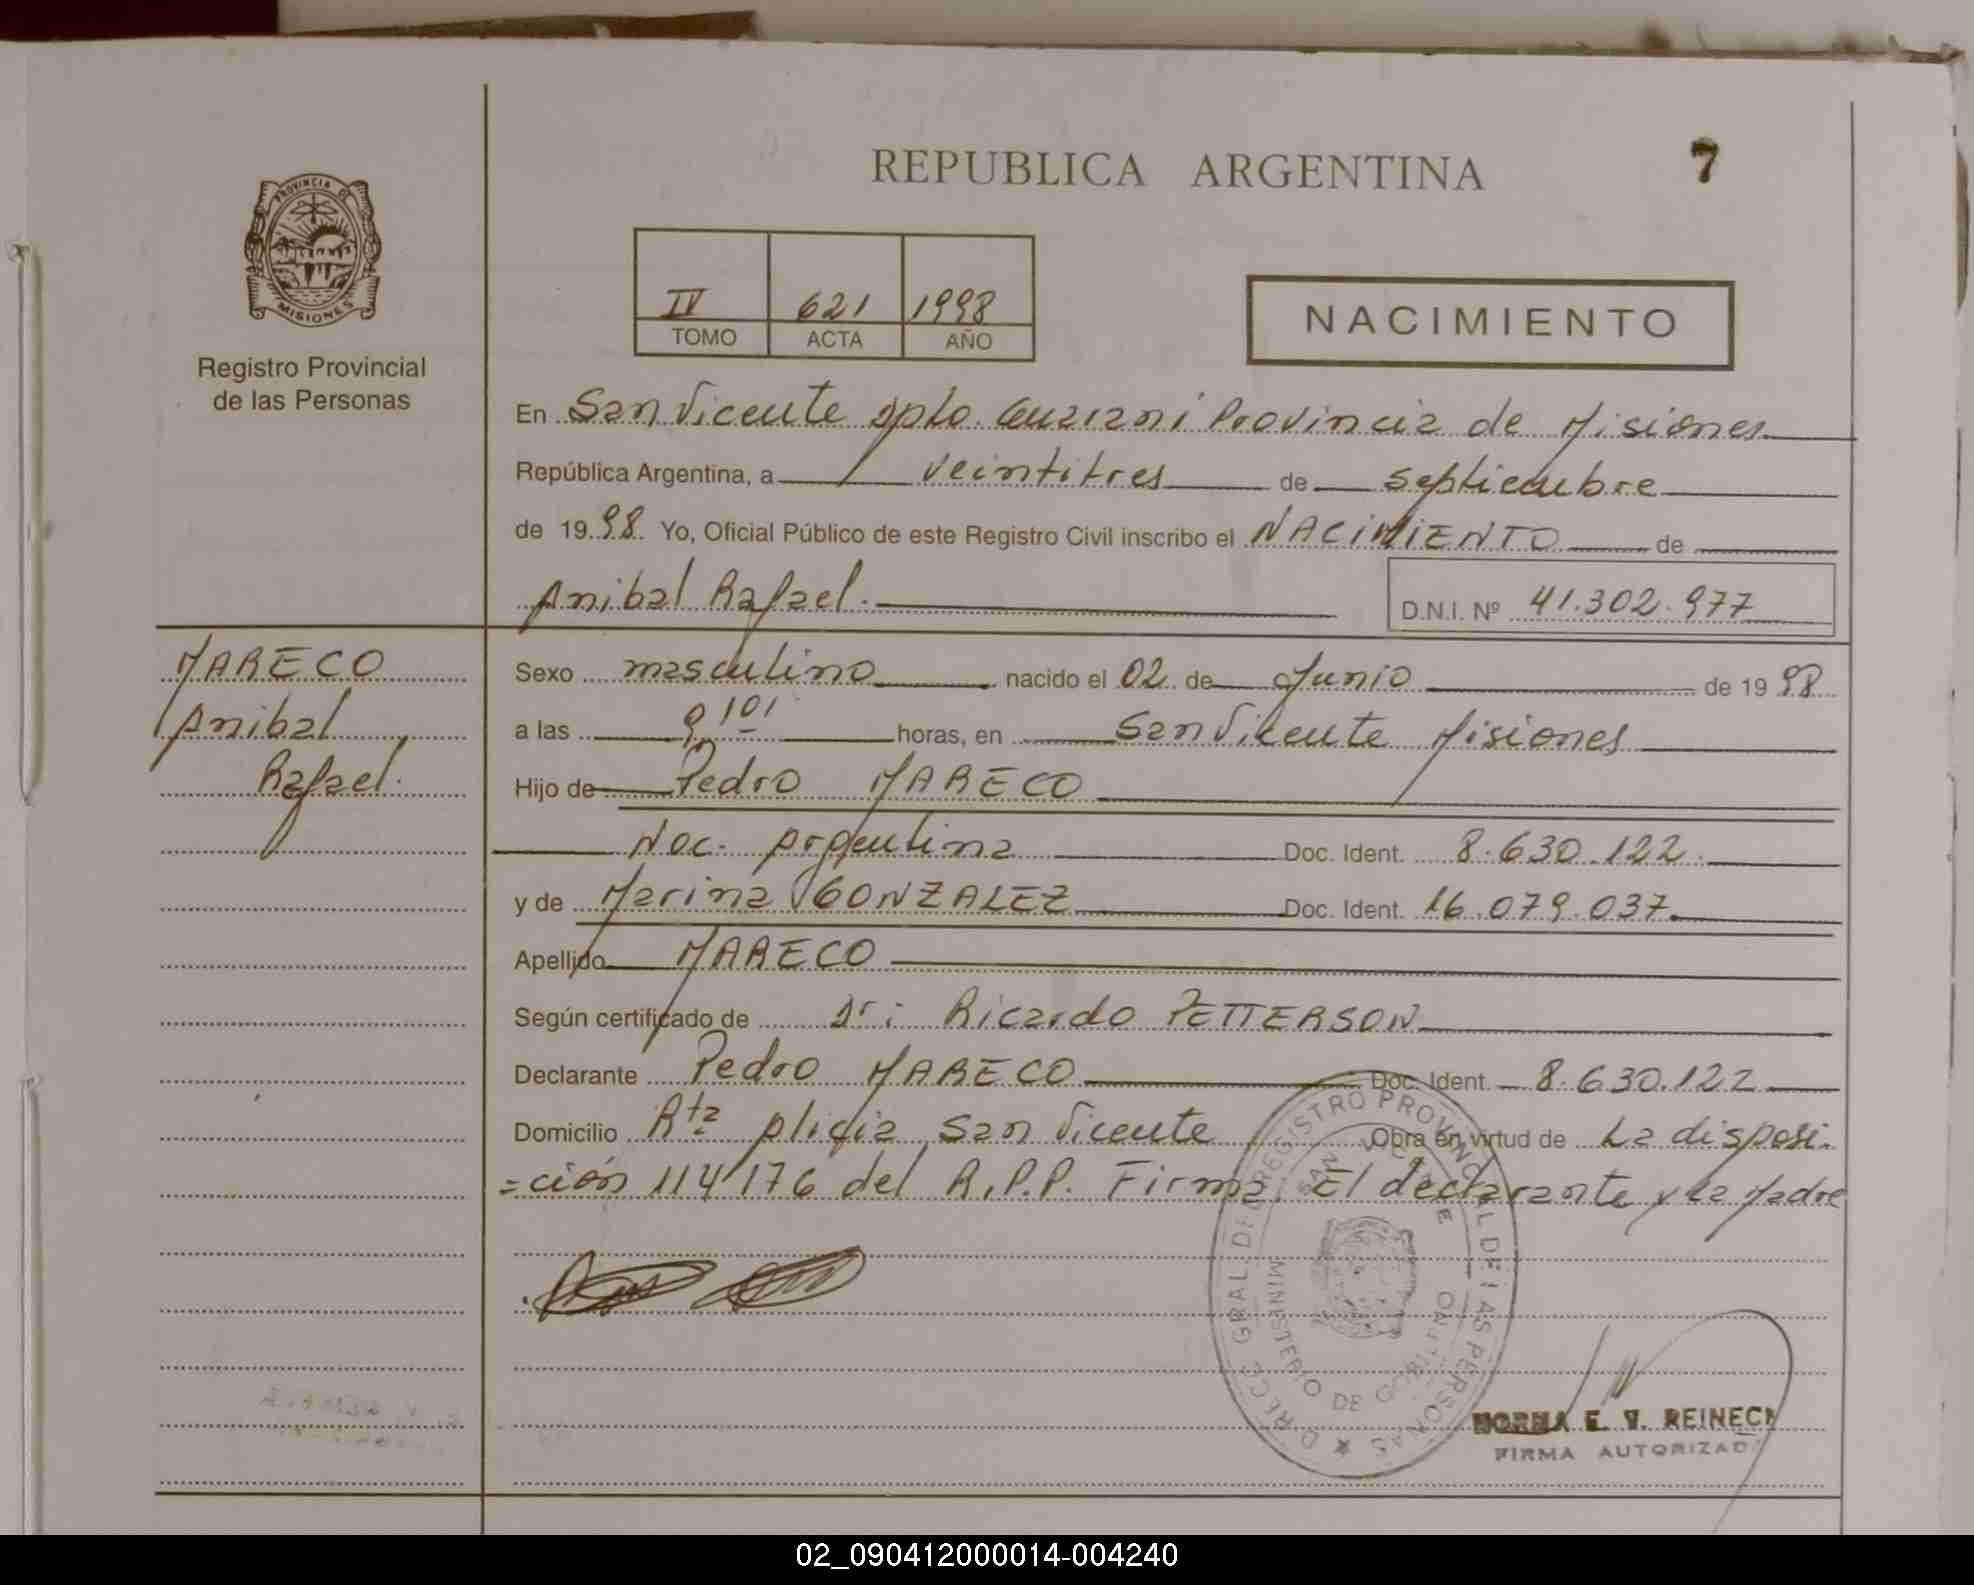 REPUBLICA ARGENTINA
7
PROVINCIA DE
MISIONES
Registro Provincial
de las Personas
IV 621 1998
TOMO ACTA AÑO
NACIMIENTO
En San Vicente Dpto. Guarani Provincia de Misiones
República Argentina, a veintitres de septiembre
de 1998. Yo, Oficial Público de este Registro Civil inscribo el NACIMIENTO de
Anibal Rafael.
D.N.I. Nº 41.302.977
MARECO
Anibal
Rafael.
Sexo masculino nacido el 02 de Junio de 1998
a las horas, en San Vicente Misiones
Hijo de Pedro MARECO
Nac. Argentina Doc. Ident. 8.630.122.
y de Marina GONZALEZ Doc. Ident. 16.079.037
Apellido MARECO
Según certificado de Dr: Ricardo PETTERSON
Declarante Pedro MARECO Doc. Ident. 8.630.122
Domicilio Rta San Vicente Obra en virtud de La disposi-
=ción 114/176 del R.P.P. Firma: El declarante y la Madre
DIRECC. GRAL. DEL REGISTRO PROVINCIAL DE LAS PERSONAS
SAN VICENTE
MINISTERIO DE GOBIERNO
NORMA E. V.
FIRMA AUTORIZADA
02_090412000014-004240